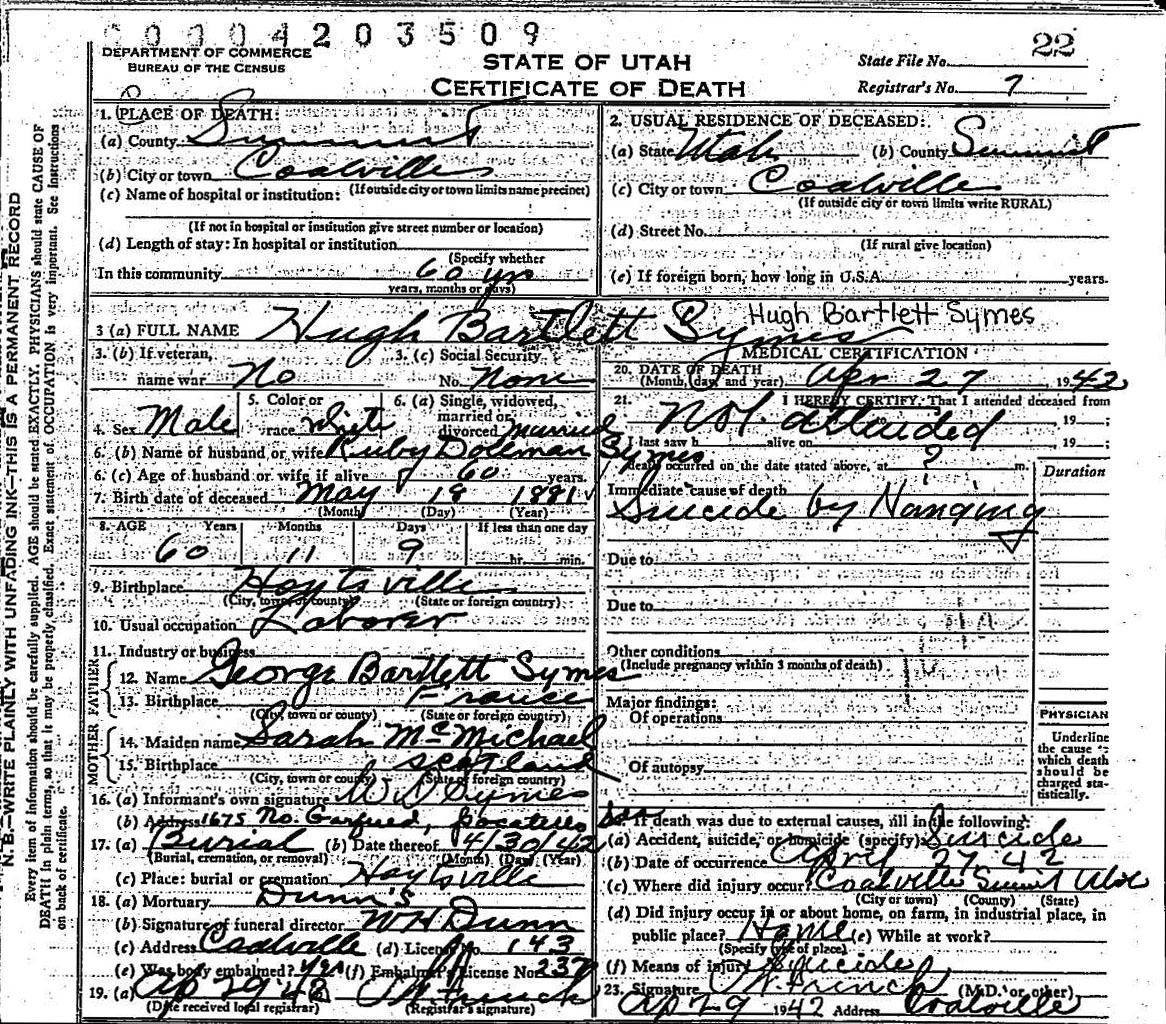 00004203509
22
DEPARTMENT OF COMMERCE
BUREAU OF THE CENSUS
STATE OF UTAH
CERTIFICATE OF DEATH
State File No.
Registrar's No. 7
N. B.—WRITE PLAINLY WITH UNFADING INK—THIS IS A PERMANENT RECORD
Every item of information should be carefully supplied. AGE should be stated EXACTLY. PHYSICIANS should state CAUSE OF
DEATH in plain terms, so that it may be properly classified. Exact statement of OCCUPATION is very important. See Instructions
on back of certificate.
1. PLACE OF DEATH:
(a) County Summit
(b) City or town Coalville
(If outside city or town limits name precinct)
(c) Name of hospital or institution:
(If not in hospital or institution give street number or location)
(d) Length of stay: In hospital or institution
(Specify whether
In this community 60 yrs
years, months or days)
2. USUAL RESIDENCE OF DECEASED:
(a) State Utah (b) County Summit
(c) City or town Coalville
(If outside city or town limits write RURAL)
(d) Street No.
(If rural give location)
(e) If foreign born, how long in U.S.A. years.
3 (a) FULL NAME Hugh Bartlett Symes
Hugh Bartlett Symes
3. (b) If veteran,
name war No
3. (c) Social Security
No. None
4. Sex Male
5. Color or
race white
6. (a) Single, widowed,
married or
divorced married
6. (b) Name of husband or wife Ruby Doleman Symes
6. (c) Age of husband or wife if alive 60 years.
7. Birth date of deceased May 18 1881
(Month) (Day) (Year)
8. AGE Years Months Days If less than one day
60 11 9 hr. min.
9. Birthplace Hoytsville
(City, town or county) (State or foreign country)
10. Usual occupation Laborer
11. Industry or business
FATHER
12. Name George Bartlett Symes
13. Birthplace France
(City, town or county) (State or foreign country)
MOTHER
14. Maiden name Sarah McMichael
15. Birthplace Scotland
(City, town or county) (State or foreign country)
16. (a) Informant's own signature Symes
(b) Address 1675 No. Garfield, Pocatello
17. (a) Burial (b) Date thereof 4/30/42
(Burial, cremation, or removal) (Month) (Day) (Year)
(c) Place: burial or cremation Hoytsville
18. (a) Mortuary Dunn's
(b) Signature of funeral director W H Dunn
(c) Address Coalville (d) License No. 143
(e) Was body embalmed? yes (f) Embalmer's License No. 237
19. (a) Ap 29 42
(Date received local registrar) (Registrar's signature)
MEDICAL CERTIFICATION
20. DATE OF DEATH
(Month, day, and year) Apr 27 1942
21. I HEREBY CERTIFY, That I attended deceased from
Not attended 19 ;
I last saw h alive on 19 ;
death occurred on the date stated above, at ? m.
Duration
Immediate cause of death
Suicide by Hanging
Due to
Due to
Other conditions
(Include pregnancy within 3 months of death)
Major findings:
Of operations
Of autopsy
PHYSICIAN
Underline
the cause
which death
should be
charged sta-
tistically.
If death was due to external causes, fill in the following:
(a) Accident, suicide, or homicide (specify) Suicide
(b) Date of occurrence April 27 42
(c) Where did injury occur? Coalville Summit Utah
(City or town) (County) (State)
(d) Did injury occur in or about home, on farm, in industrial place, in
public place? Home (e) While at work?
(Specify type of place)
(f) Means of injury Suicide
23. Signature (M.D. or other)
Ap 29 1942 Address Coalville